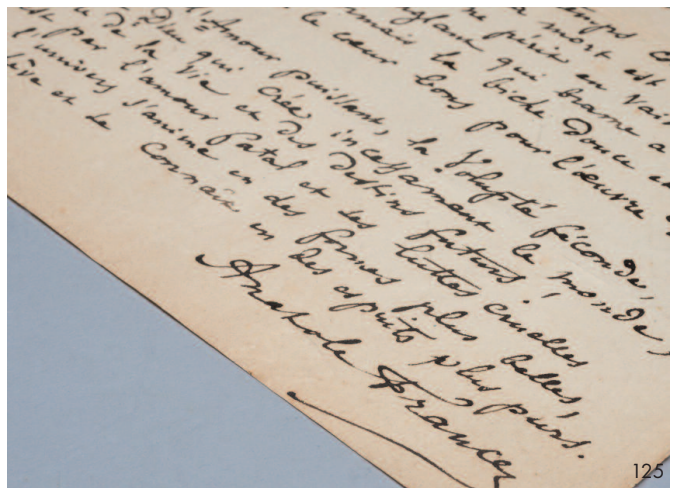 temps
mort est
en vain
qui brame a
la biche douce
le cœur bons pour l'œuvre
l'Amour puissant, la Volupté féconde,
Dieu qui crée incessamment le monde,
de la vie et des destins futurs!
par l'amour fatal et les luttes cruelles
l'univers s'anime en des formes plus belles,
ève et se connaît en des esprits plus purs.
Anatole France
125